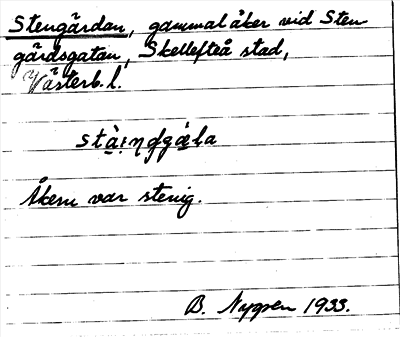 Stengärdan, gammal åker vid Sten
gärdsgatan, Skellefteå stad,
Västerb. l.
Åkern var stenig.
B. Nygren 1933.